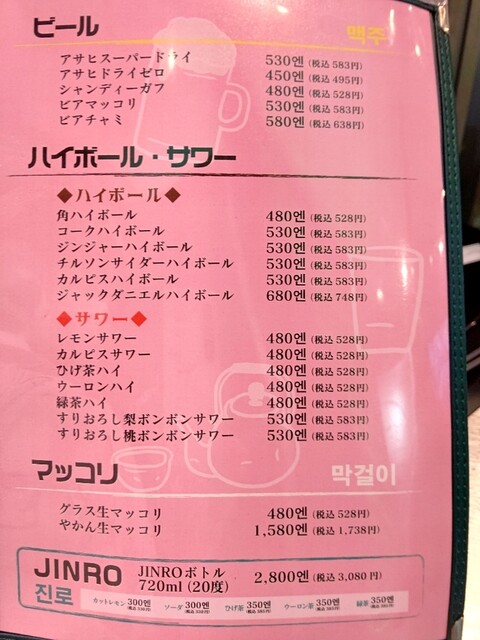 ビール 맥주
アサヒスーパードライ 530엔 (税込 583円)
アサヒドライゼロ 450엔 (税込 495円)
シャンディーガフ 480엔 (税込 528円)
ビアマッコリ 530엔 (税込 583円)
ビアチャミ 580엔 (税込 638円)
ハイボール・サワー
◆ハイボール◆
角ハイボール 480엔 (税込 528円)
コークハイボール 530엔 (税込 583円)
ジンジャーハイボール 530엔 (税込 583円)
チルソンサイダーハイボール 530엔 (税込 583円)
カルピスハイボール 530엔 (税込 583円)
ジャックダニエルハイボール 680엔 (税込 748円)
◆サワー◆
レモンサワー 480엔 (税込 528円)
カルピスサワー 480엔 (税込 528円)
ひげ茶ハイ 480엔 (税込 528円)
ウーロンハイ 480엔 (税込 528円)
緑茶ハイ 480엔 (税込 528円)
すりおろし梨ボンボンサワー 530엔 (税込 583円)
すりおろし桃ボンボンサワー 530엔 (税込 583円)
マッコリ 막걸이
グラス生マッコリ 480엔 (税込 528円)
やかん生マッコリ 1,580엔 (税込 1,738円)
JINRO JINROボトル
진로 720ml (20度) 2,800엔 (税込 3,080円)
カットレモン 300엔 ソーダ 300엔 ひげ茶 350엔 ウーロン茶 350엔 緑茶 350엔